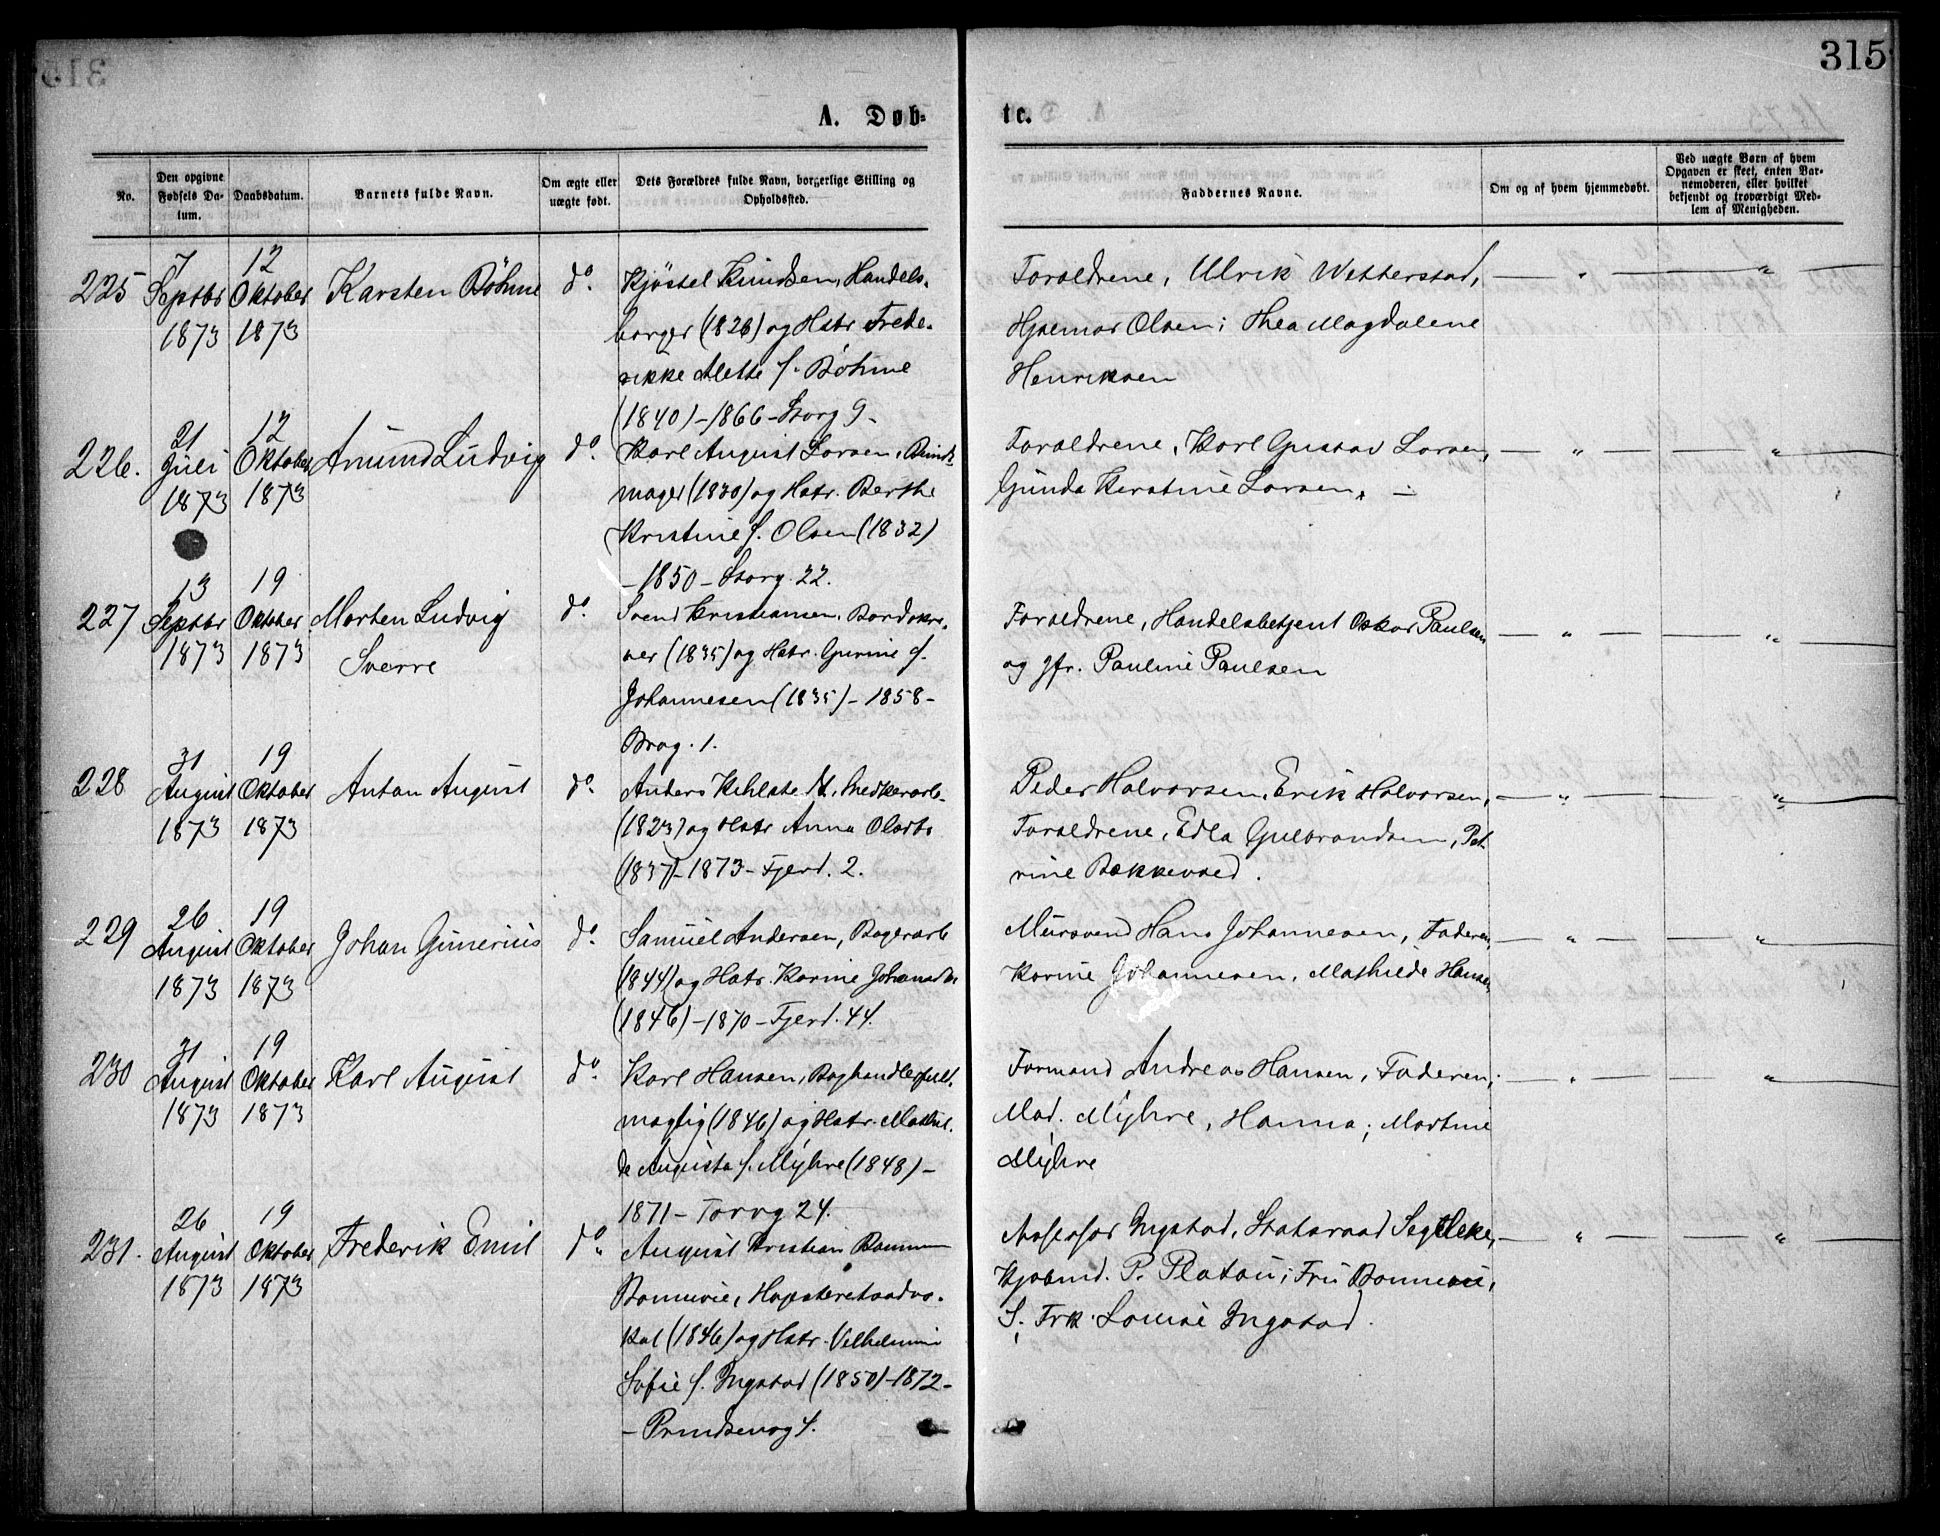 315
A. Døb-
te.
No.
Den opgivne Fødsels Datum.
Daabsdatum.
Barnets fulde Navn.
Om ægte eller uægte født.
Dets Forældres fulde Navn, borgerlige Stilling og Opholdssted.
Faddernes Navne.
Om og af hvem hjemmedøbt.
Ved uægte Børn af hvem Opgaven er skeet, enten Barnemoderen, eller hvilket bekjendt og troværdigt Medlem af Menigheden.
225 7 Septbr 1873
12 Oktober 1873
Karsten Böhme
do.
Kjöstel Knudsen, Handels-
borger (1826) og Hstr Frede-
rikke Mette f. Böhme
(1840) - 1866 - Storg 9 -
Foraldrene, Ulrik Wetterstad,
Hjalmar Olsen; Thea Magdalene
Henriksen
226. 21 Juli 1873
12 Oktober 1873
Amund Ludvig
do.
Karl August Larsen,
mager (1830) og Hstr. Berthe
Kristine f. Olsen (1832)
- 1850 - Storg. 22.
Foraldrene, Karl Gustav Larsen,
Gunda Kirstine Larsen.
227 13 Septbr 1873
19 Oktober 1873
Morten Ludvig
Sverre
do.
Svend Kristiansen, Bordskri-
ver (1835) og Hstr. Gurine f.
Johannesen (1835) - 1858 -
Brog. 1.
Foraldrene, Handelsbetjent Oskar Paulsen
og Jfr. Pauline Paulsen
228 31 August 1873
19 Oktober 1873
Anton August
do.
Anders
(1823) og Hstr Anna Olsdtr
(1837) - 1873 - Fjerd. 2.
Peder Halvorsen, Erik Halvorsen,
Foraldrene, Edla Gulbrandsen, Pet-
rine Bakkevold.
229 26 August 1873
19 Oktober 1873
Johan Gunerius
do.
Samuel Andersen, Bagerarb
(1844) og Hstr. Karine Johansdtr
(1846) - 1870 - Fjerd. 44.
Mursvend Hans Johannesen, Faderen,
Karine Johannesen, Mathilde Hansen
230 31 August 1873
19 Oktober 1873
Karl August
do.
Karl Hansen, Boghandlerfuld-
mægtig (1846) og Hstr. Mathil-
de Augusta f. Myhre (1848) -
1871 - Torvg 24.
Formand Andreas Hansen, Faderen;
Mad. Myhre, Hanna; Martine
Myhre
231. 26 August 1873
19 Oktober 1873
Frederik Emil
do.
August Kristian
Bonnevie, Høiesteretsadvo-
kat (1846) og Hstr. Vilhelmine
Sofie f. Ingstad (1850) - 1872 -
- Prindsensg 4.
Assessor Ingstad, Statsraad Segelcke,
Kjøbmd. P. Platou; Fru Bonnevie,
S; Frk. Louise Ingstad.